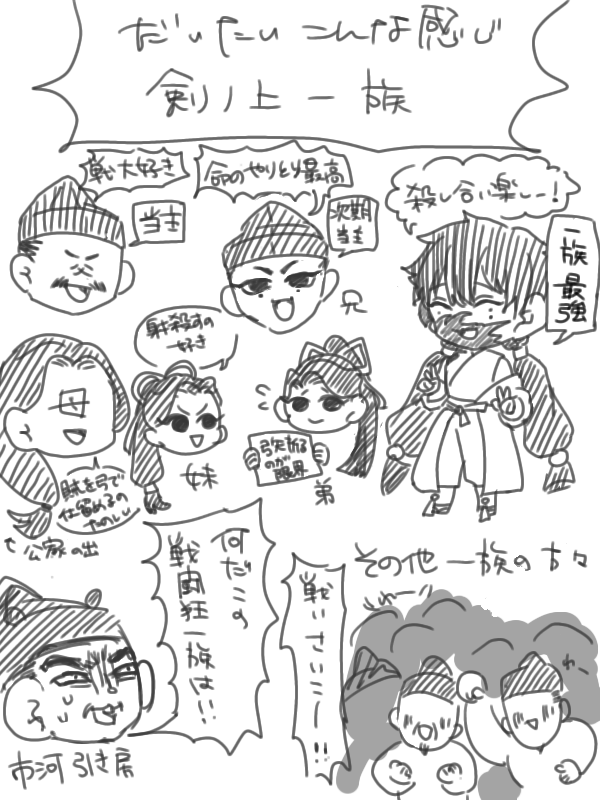 だいたいこんな感じ
剣ノ上一族
戦大好き
当主
命のやりとり最高
次期
当主
兄
殺し合い楽しー!
一族最強
母
射殺すの
好き
妹
弓矢折る
のが
限界
弟
賊を弓で
仕留めるの
たのしい
公家の出
何だこの
戦闘狂一族は!!
戦いさいこー!!
その他一族の方々
わー
市河引き房